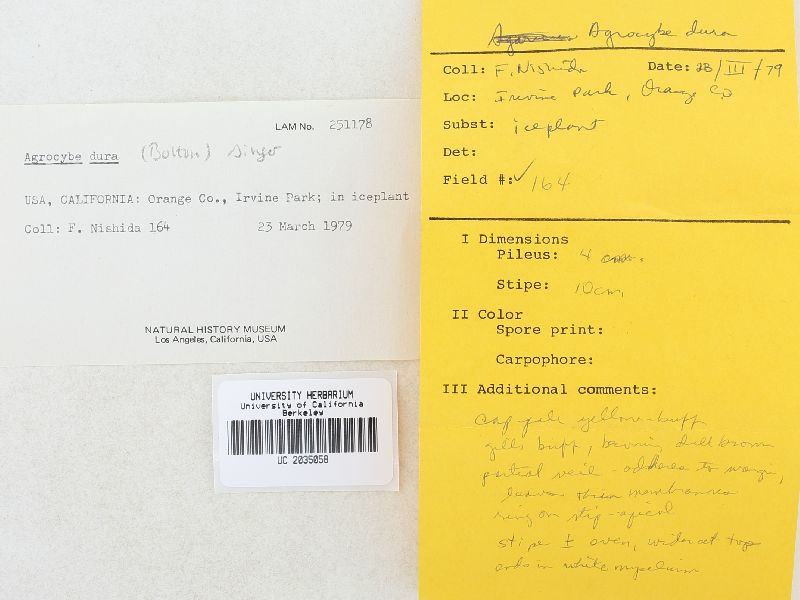 LAM No. 251178
Agrocybe dura (Bolton) Singer
USA, CALIFORNIA: Orange Co., Irvine Park; in iceplant
Coll: F. Nishida 164 23 March 1979
NATURAL HISTORY MUSEUM
Los Angeles, California, USA
UNIVERSITY HERBARIUM
University of California
Berkeley
UC 2035058
Agrocybe dura
Coll: F. Nishida Date: 23/III/79
Loc: Irvine Park, Orange Co
Subst: iceplant
Det:
Field #:✓ 164
I Dimensions
Pileus: 4 cm.
Stipe: 10cm,
II Color
Spore print:
Carpophore:
III Additional comments:
cap pale yellow-buff
gills buff, becoming dull brown
partial veil - adheres to margin,
leaves thin membranous
ring on stip - apical
stipe ± even, wider at top
ends in white mycelium